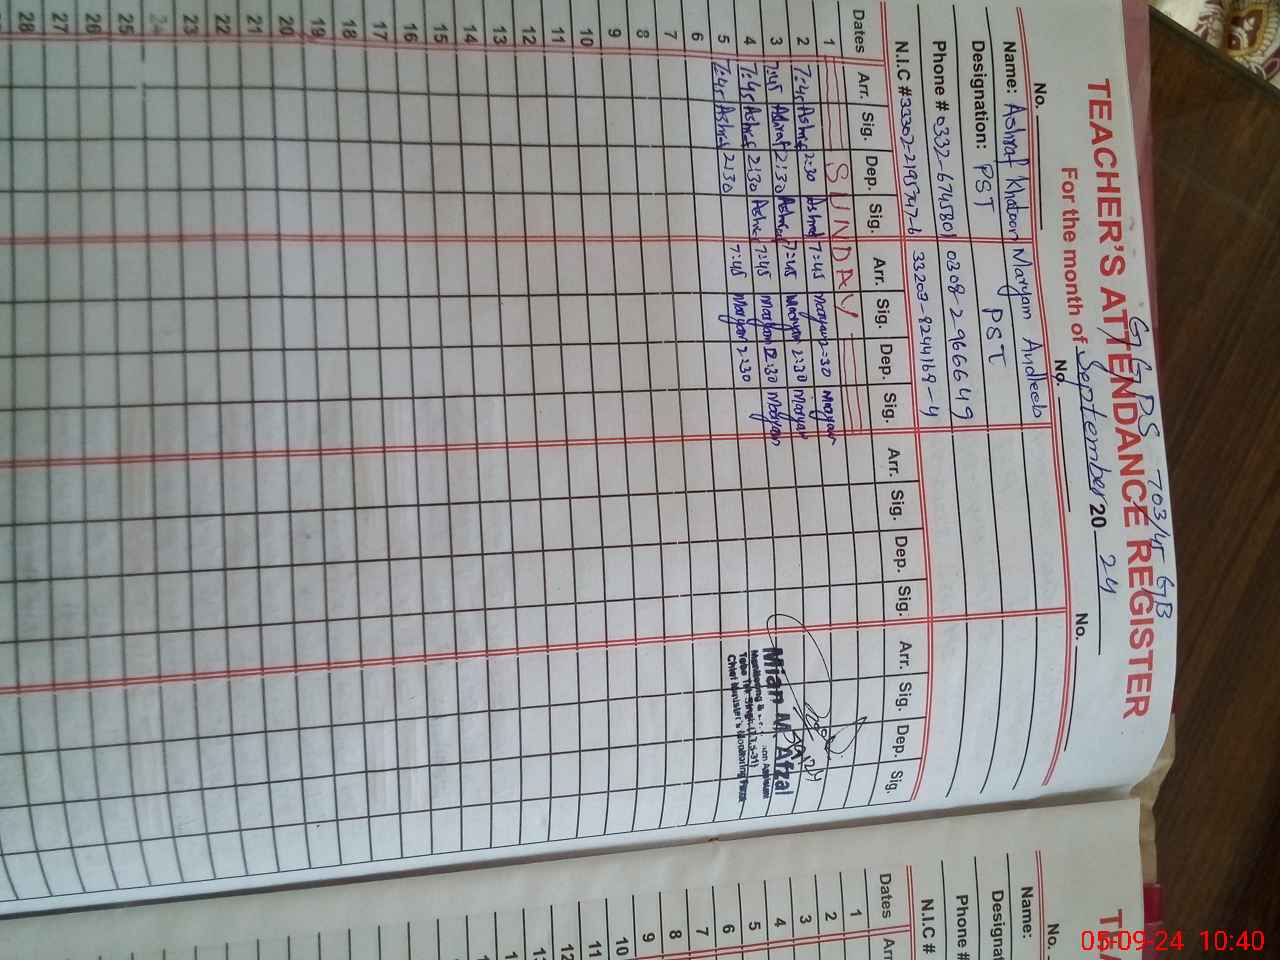 GGPS 703/45 GB
TEACHER'S ATTENDANCE REGISTER
For the month of September 20 24
No. No. No.
Name: Ashraf Khatoon Maryam Andleeb
Designation: PST PST
Phone # 0332-6745801 0308-2966649
N.I.C # 33203-8244169-4
Dates Arr. Sig. Dep. Sig. Arr. Sig. Dep. Sig. Arr. Sig. Dep. Sig. Arr. Sig. Dep. Sig.
1 SUNDAY
2 7:45 Ashraf 2:30 Ashraf 7:45 Maryam 2:30 Maryam
3 7:45 Ashraf 2:30 Ashraf 7:45 Maryam 2:30 Maryam
4 7:45 Ashraf 2:30 Ashraf 7:45 Maryam 2:30 Maryam
5 7:45 Ashraf 2:30 7:45 Maryam 2:30
6
7
8
9
10
11
12
13
14
15
16
17
18
19
20
21
22
23
25
26
27
28
Mian M. Afzal
Monitoring &
Chief Minister's Monitoring
No.
Name:
Designat
Phone #
N.I.C #
Dates Arr
1
2
3
4
5
6
7
8
9
10
11
12
05-09-24 10:40